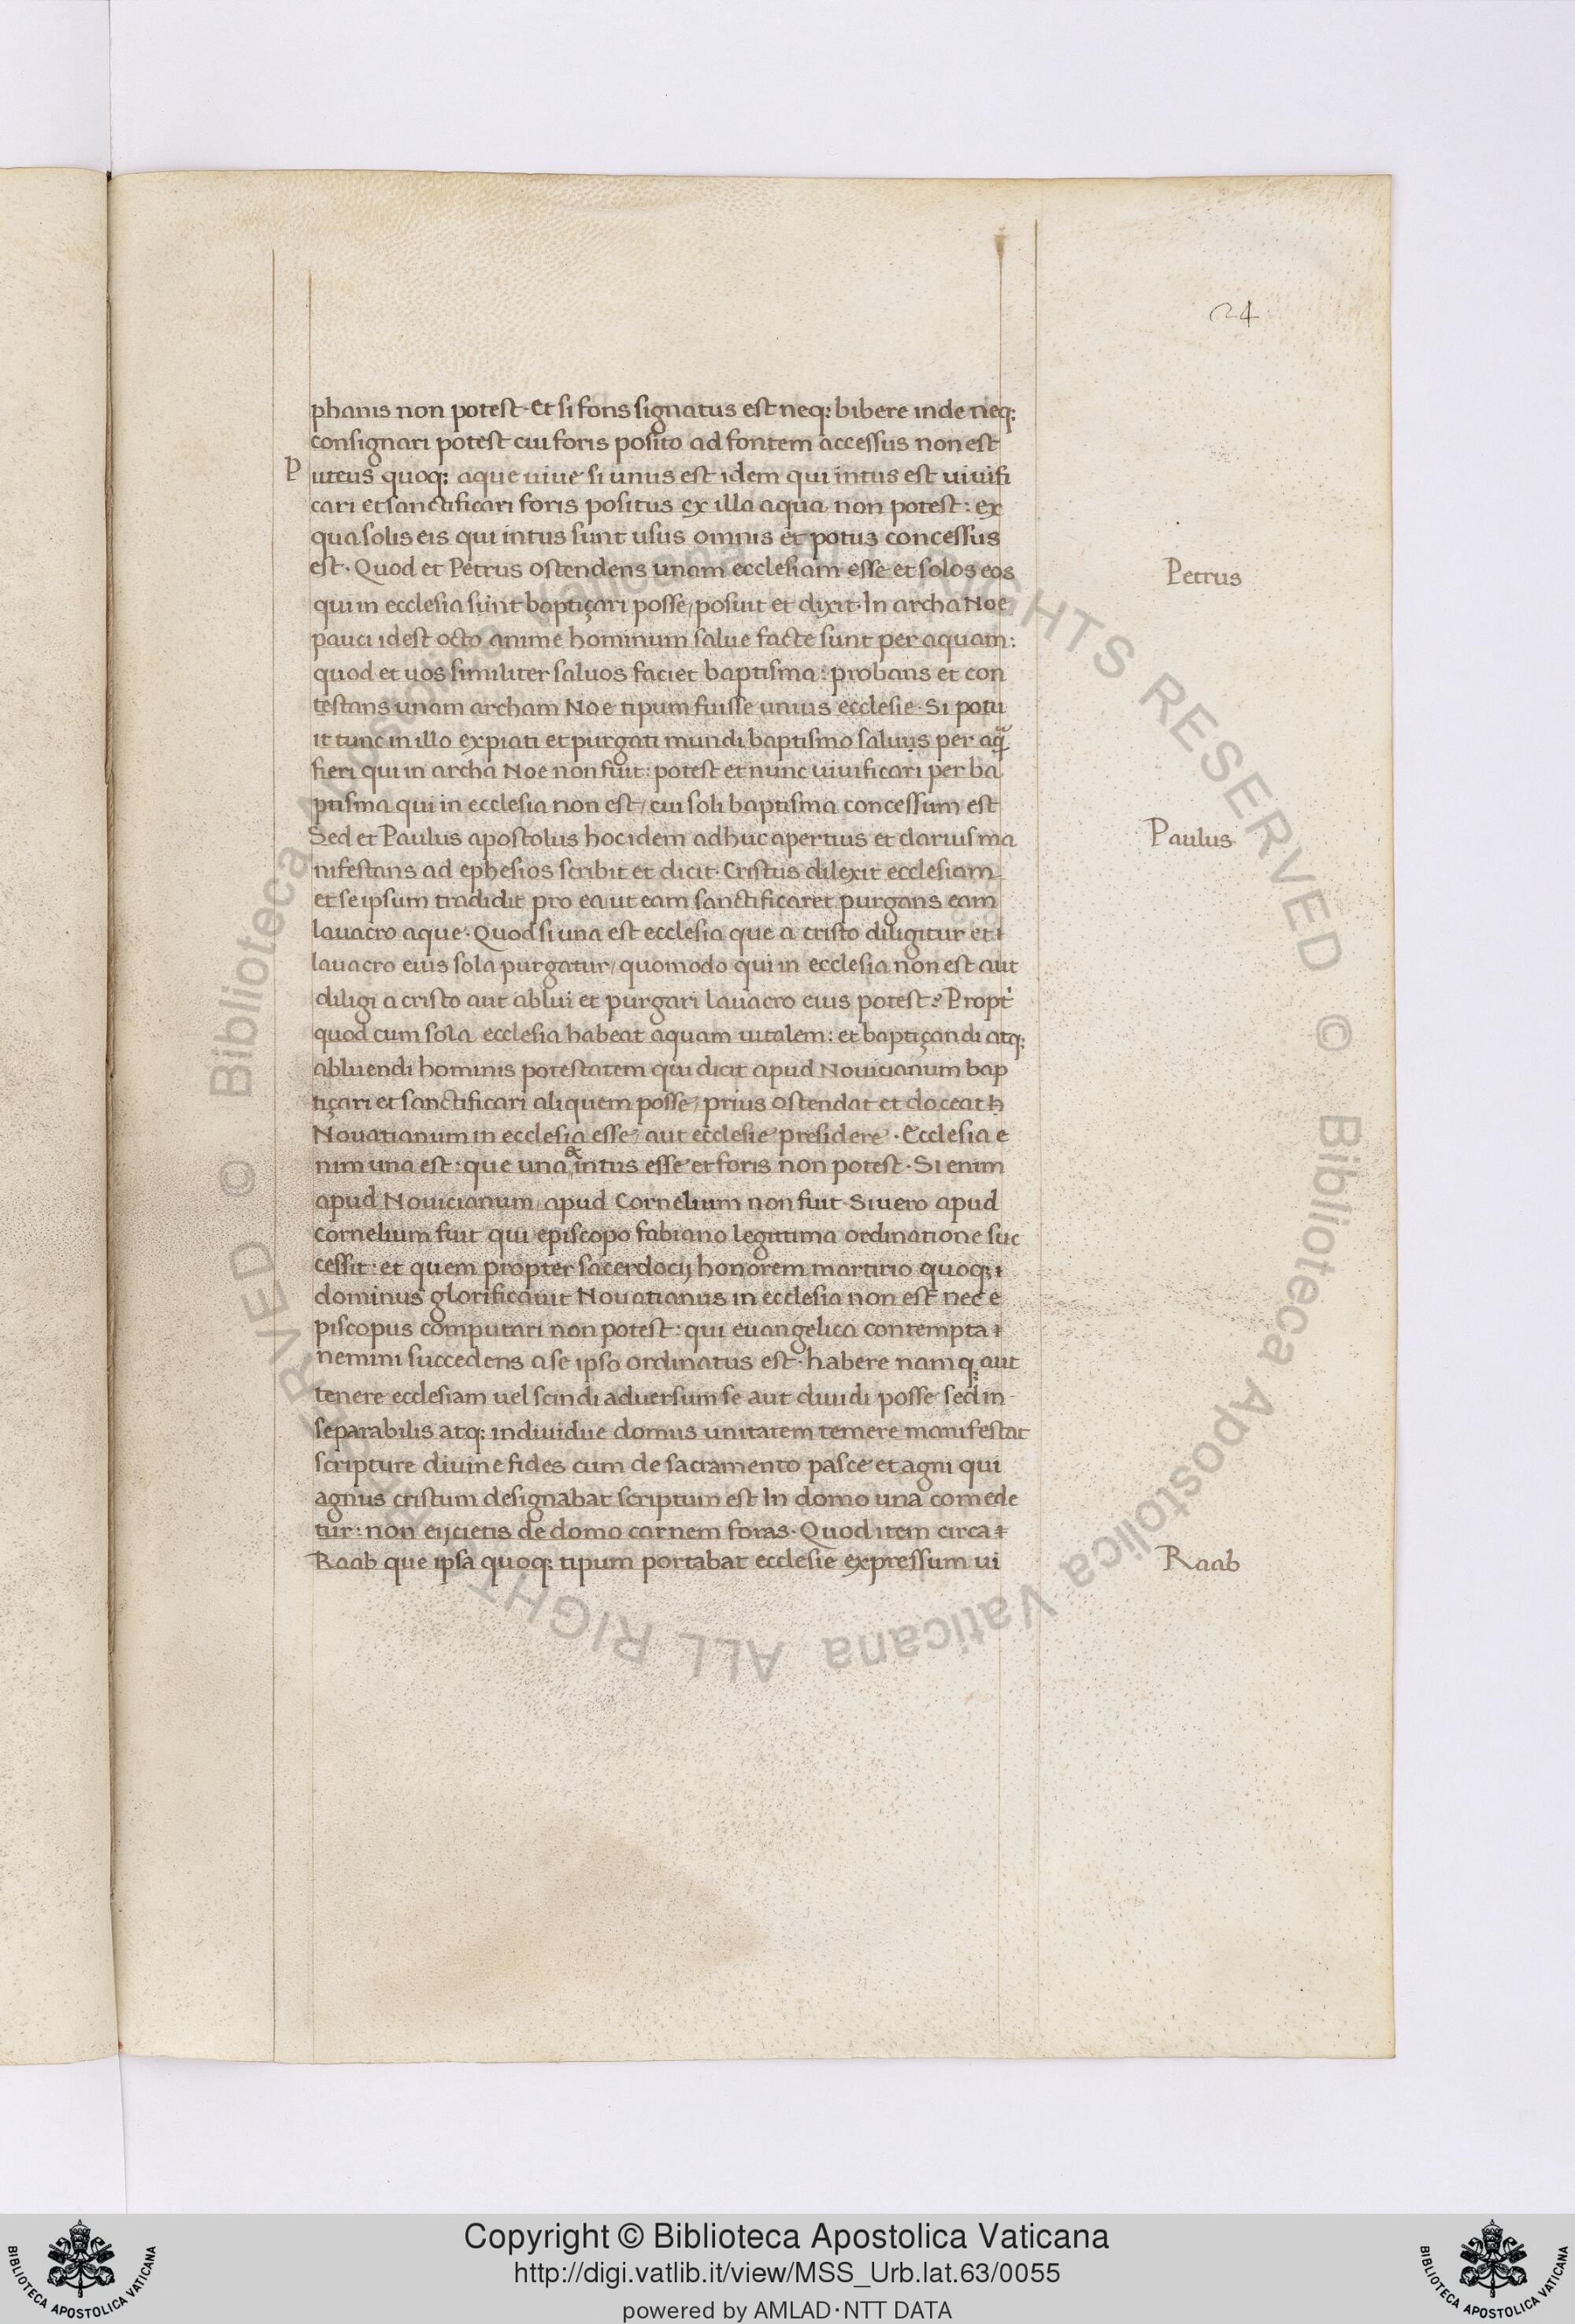 24
phanis non potest · Et si fons signatus est neq; bibere inde neq;
consignari potest cui foris posito ad fontem accessus non est
Puteus quoq; aque uiue si unus est idem qui intus est uiuifi
cari et sanctificari foris positus ex illa aqua non potest : ex
qua solis eis qui intus sunt usus omnis et potus concessus
est · Quod et Petrus ostendens unam ecclesiam esse et solos eos
Petrus
qui in ecclesia sunt baptiçari posse / posuit et dixit · In archa Noe
pauci idest octo anime hominum salue facte sunt per aquam :
quod et uos similiter saluos faciet baptisma : probans et con
testans unam archam Noe tipum fuisse unius ecclesie · Si potu
it tunc in illo expiati et purgati mundi baptismo saluus per aquã
fieri qui in archa Noe non fuit : potest et nunc uiuificari per ba
ptisma qui in ecclesia non est / cui soli baptisma concessum est
Sed et Paulus apostolus hoc idem adhuc apertius et clarius ma
Paulus
nifestans ad ephesios scribit et dicit · Cristus dilexit ecclesiam
et se ipsum tradidit pro ea ut eam sanctificaret purgans eam
lauacro aque · Quod si una est ecclesia que a cristo diligitur et
lauacro eius sola purgatur / quomodo qui in ecclesia non est aut
diligi a cristo aut ablui et purgari lauacro eius potest ? Propt᾽
quod cum sola ecclesia habeat aquam uitalem : et baptiçandi atq;
abluendi hominis potestatem qui dicit apud Nouicianum bap
tiçari et sanctificari aliquem posse / prius ostendat et doceat
Nouatianum in ecclesia esse / aut ecclesie presidere · Ecclesia e
nim una est : que una & intus esse et foris non potest · Si enim
apud Nouicianum / apud Cornelium non fuit · Si uero apud
cornelium fuit qui episcopo fabiano legittima ordinatione suc
cessit : et quem propter sacerdocij honorem martirio quoq;
dominus glorificauit Nouatianus in ecclesia non est nec e
piscopus computari non potest : qui euangelica contempta
nemini succedens a se ipso ordinatus est · habere namq; aut
tenere ecclesiam uel scindi aduersum se aut diuidi posse sed in
separabilis atq; indiuidue domus unitatem temere manifestat
scripture diuine fides cum de sacramento pasce et agni qui
agnus cristum designabat scriptum est In domo una comede
tur : non eijcietis de domo carnem foras · Quod item circa
Raab que ipsa quoq; tipum portabat ecclesie expressum ui
Raab
© Biblioteca Apostolica Vaticana ALL RIGHTS RESERVED © Biblioteca Apostolica Vaticana ALL RIGHTS RESERVED
Copyright © Biblioteca Apostolica Vaticana
http://digi.vatlib.it/view/MSS_Urb.lat.63/0055
powered by AMLAD·NTT DATA
BIBLIOTECA APOSTOLICA VATICANA
BIBLIOTECA APOSTOLICA VATICANA